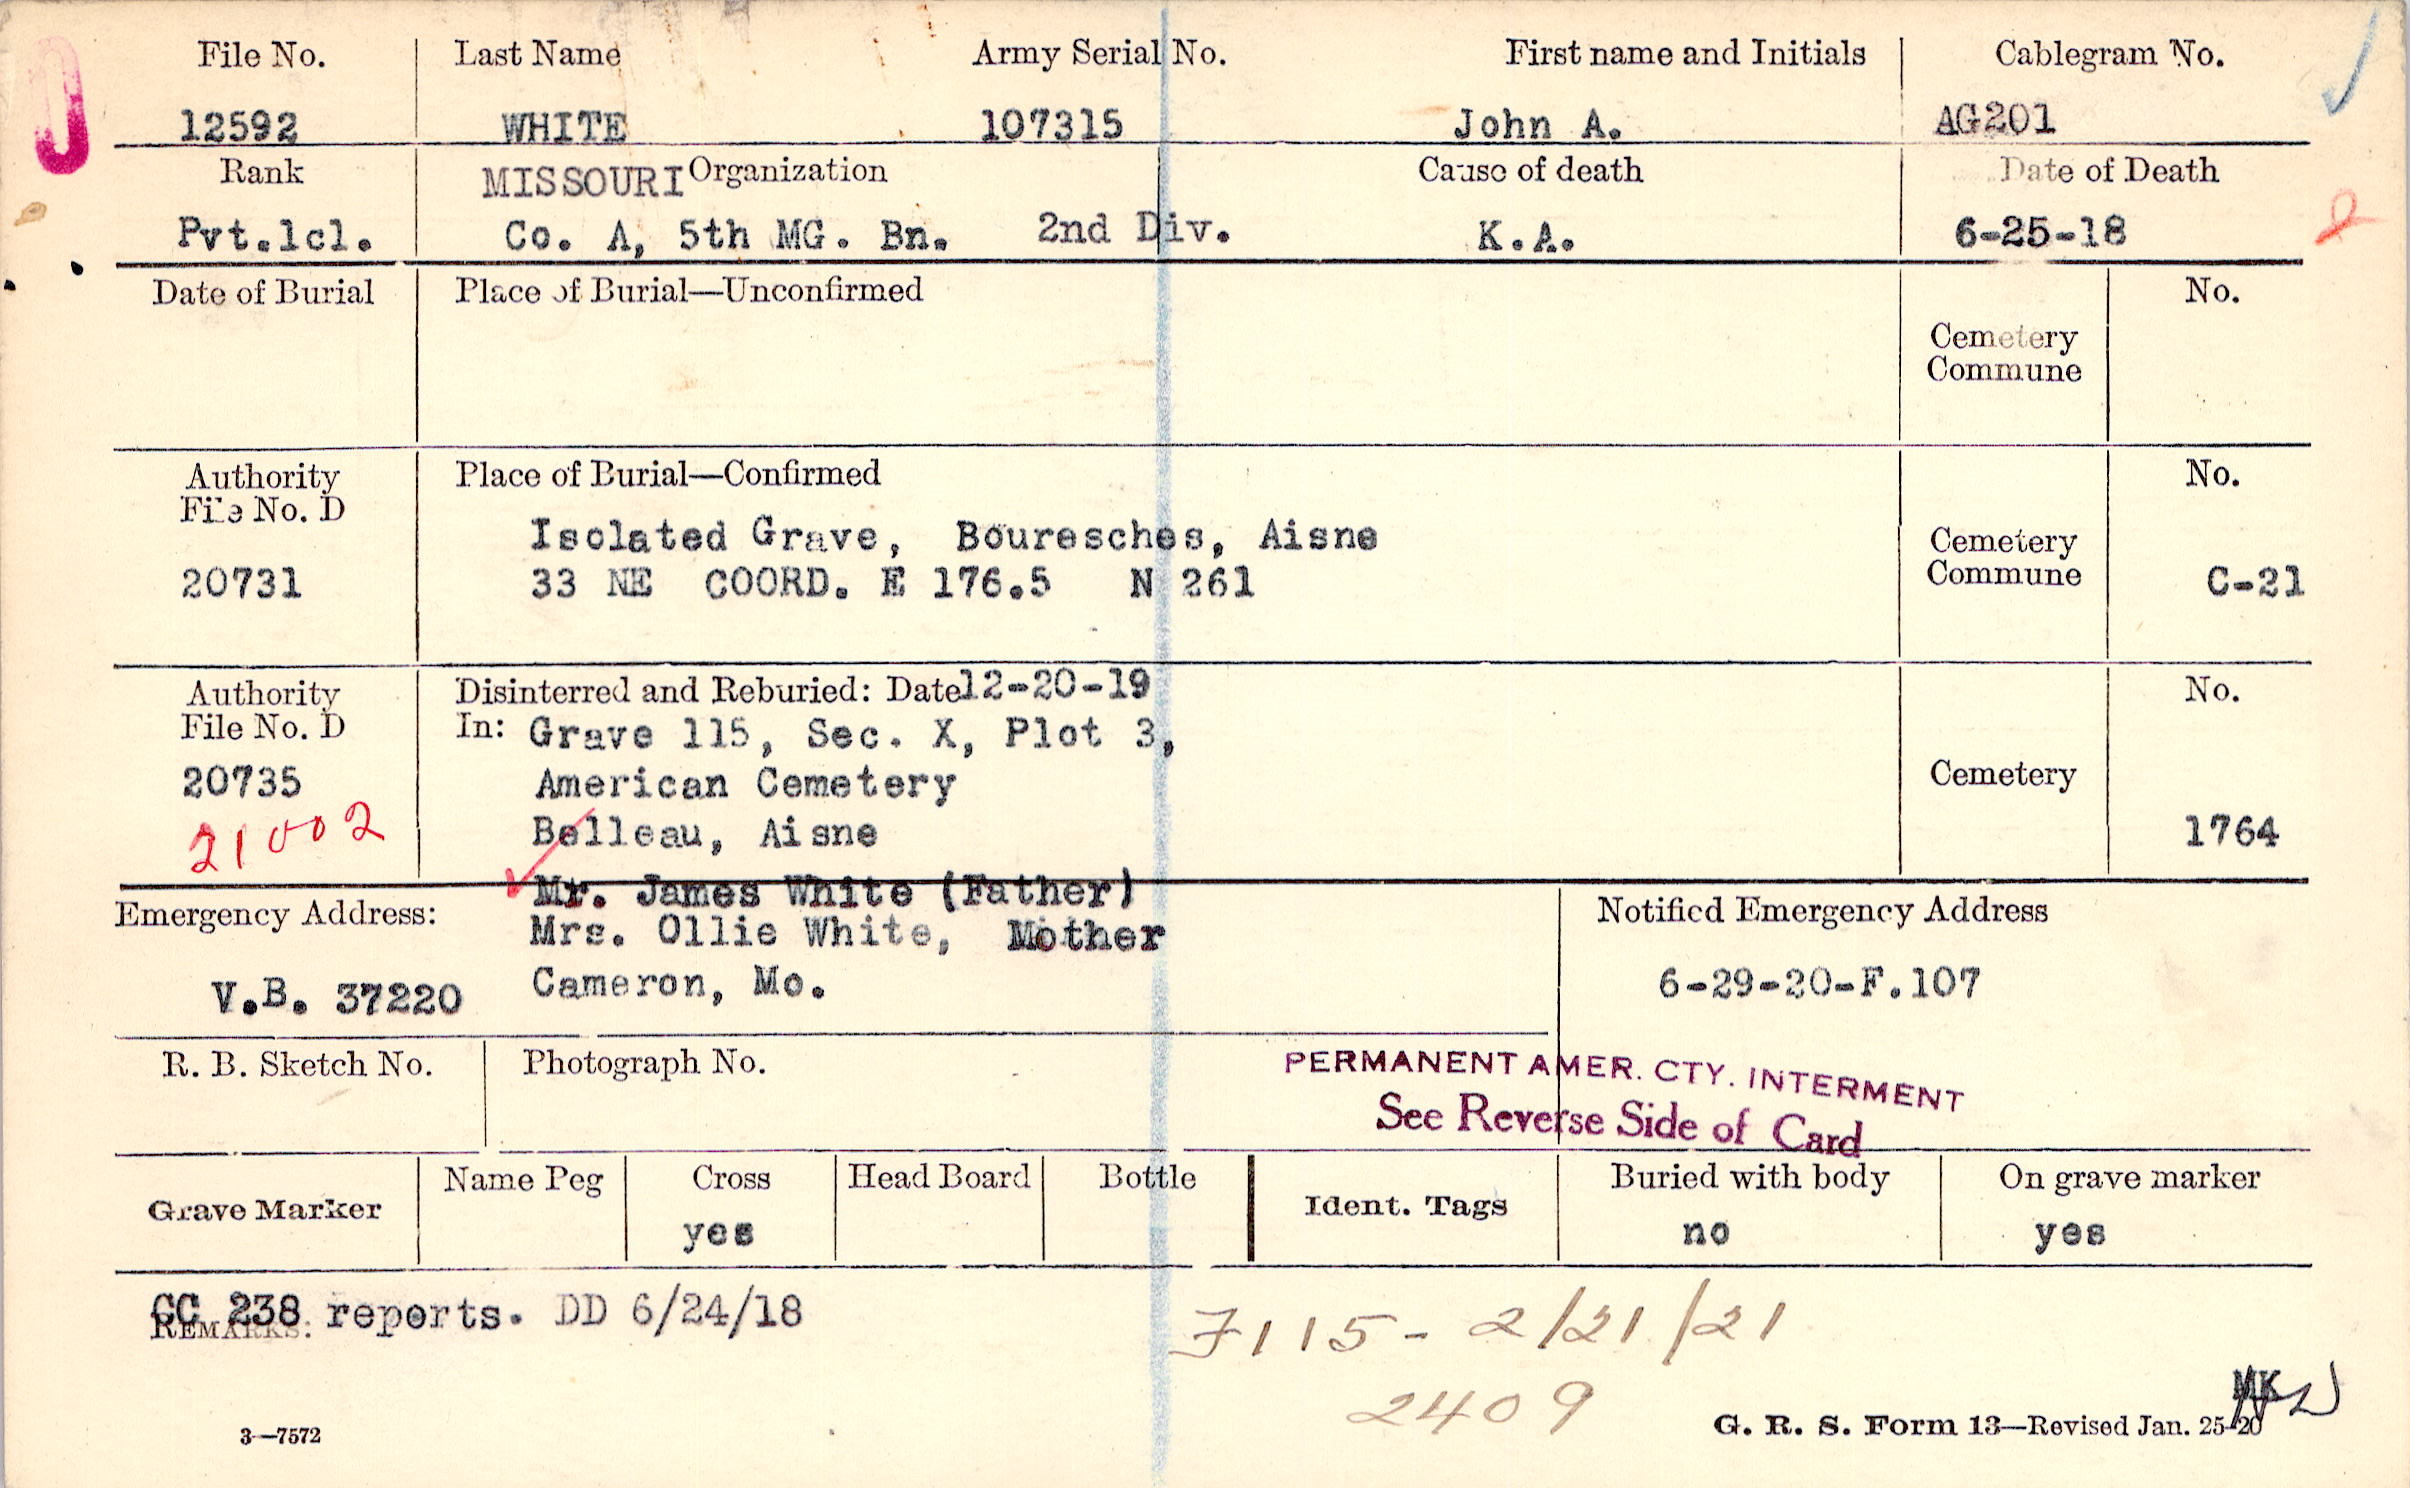 File No. Last Name Army Serial No. First name and Initials Cablegram No.
12592 WHITE 107315 John A. AG201
Rank MISSOURI Organization Cause of death Date of Death
Pvt.1cl. Co. A, 5th MG. Bn. 2nd Div. K.A. 6-25-18
Date of Burial Place of Burial—Unconfirmed No.
Cemetery
Commune
Authority Place of Burial—Confirmed No.
File No. D
Isolated Grave, Bouresches, Aisne Cemetery
20731 33 NE COORD. E 176.5 N 261 Commune C-21
Authority Disinterred and Reburied: Date 12-20-19 No.
File No. D In: Grave 115, Sec. X, Plot 3,
20735 American Cemetery Cemetery
21002 Belleau, Aisne 1764
Mr. James White (Father)
Emergency Address: Mrs. Ollie White, Mother Notified Emergency Address
V.B. 37220 Cameron, Mo. 6-29-20-F.107
R. B. Sketch No. Photograph No. PERMANENT AMER. CTY. INTERMENT
See Reverse Side of Card
Grave Marker Name Peg Cross Head Board Bottle Ident. Tags Buried with body On grave marker
yes no yes
GC 238 reports. DD 6/24/18
REMARKS:
7115- 2/21/21
2409
MK
3—7572 G. R. S. Form 13—Revised Jan. 25-20